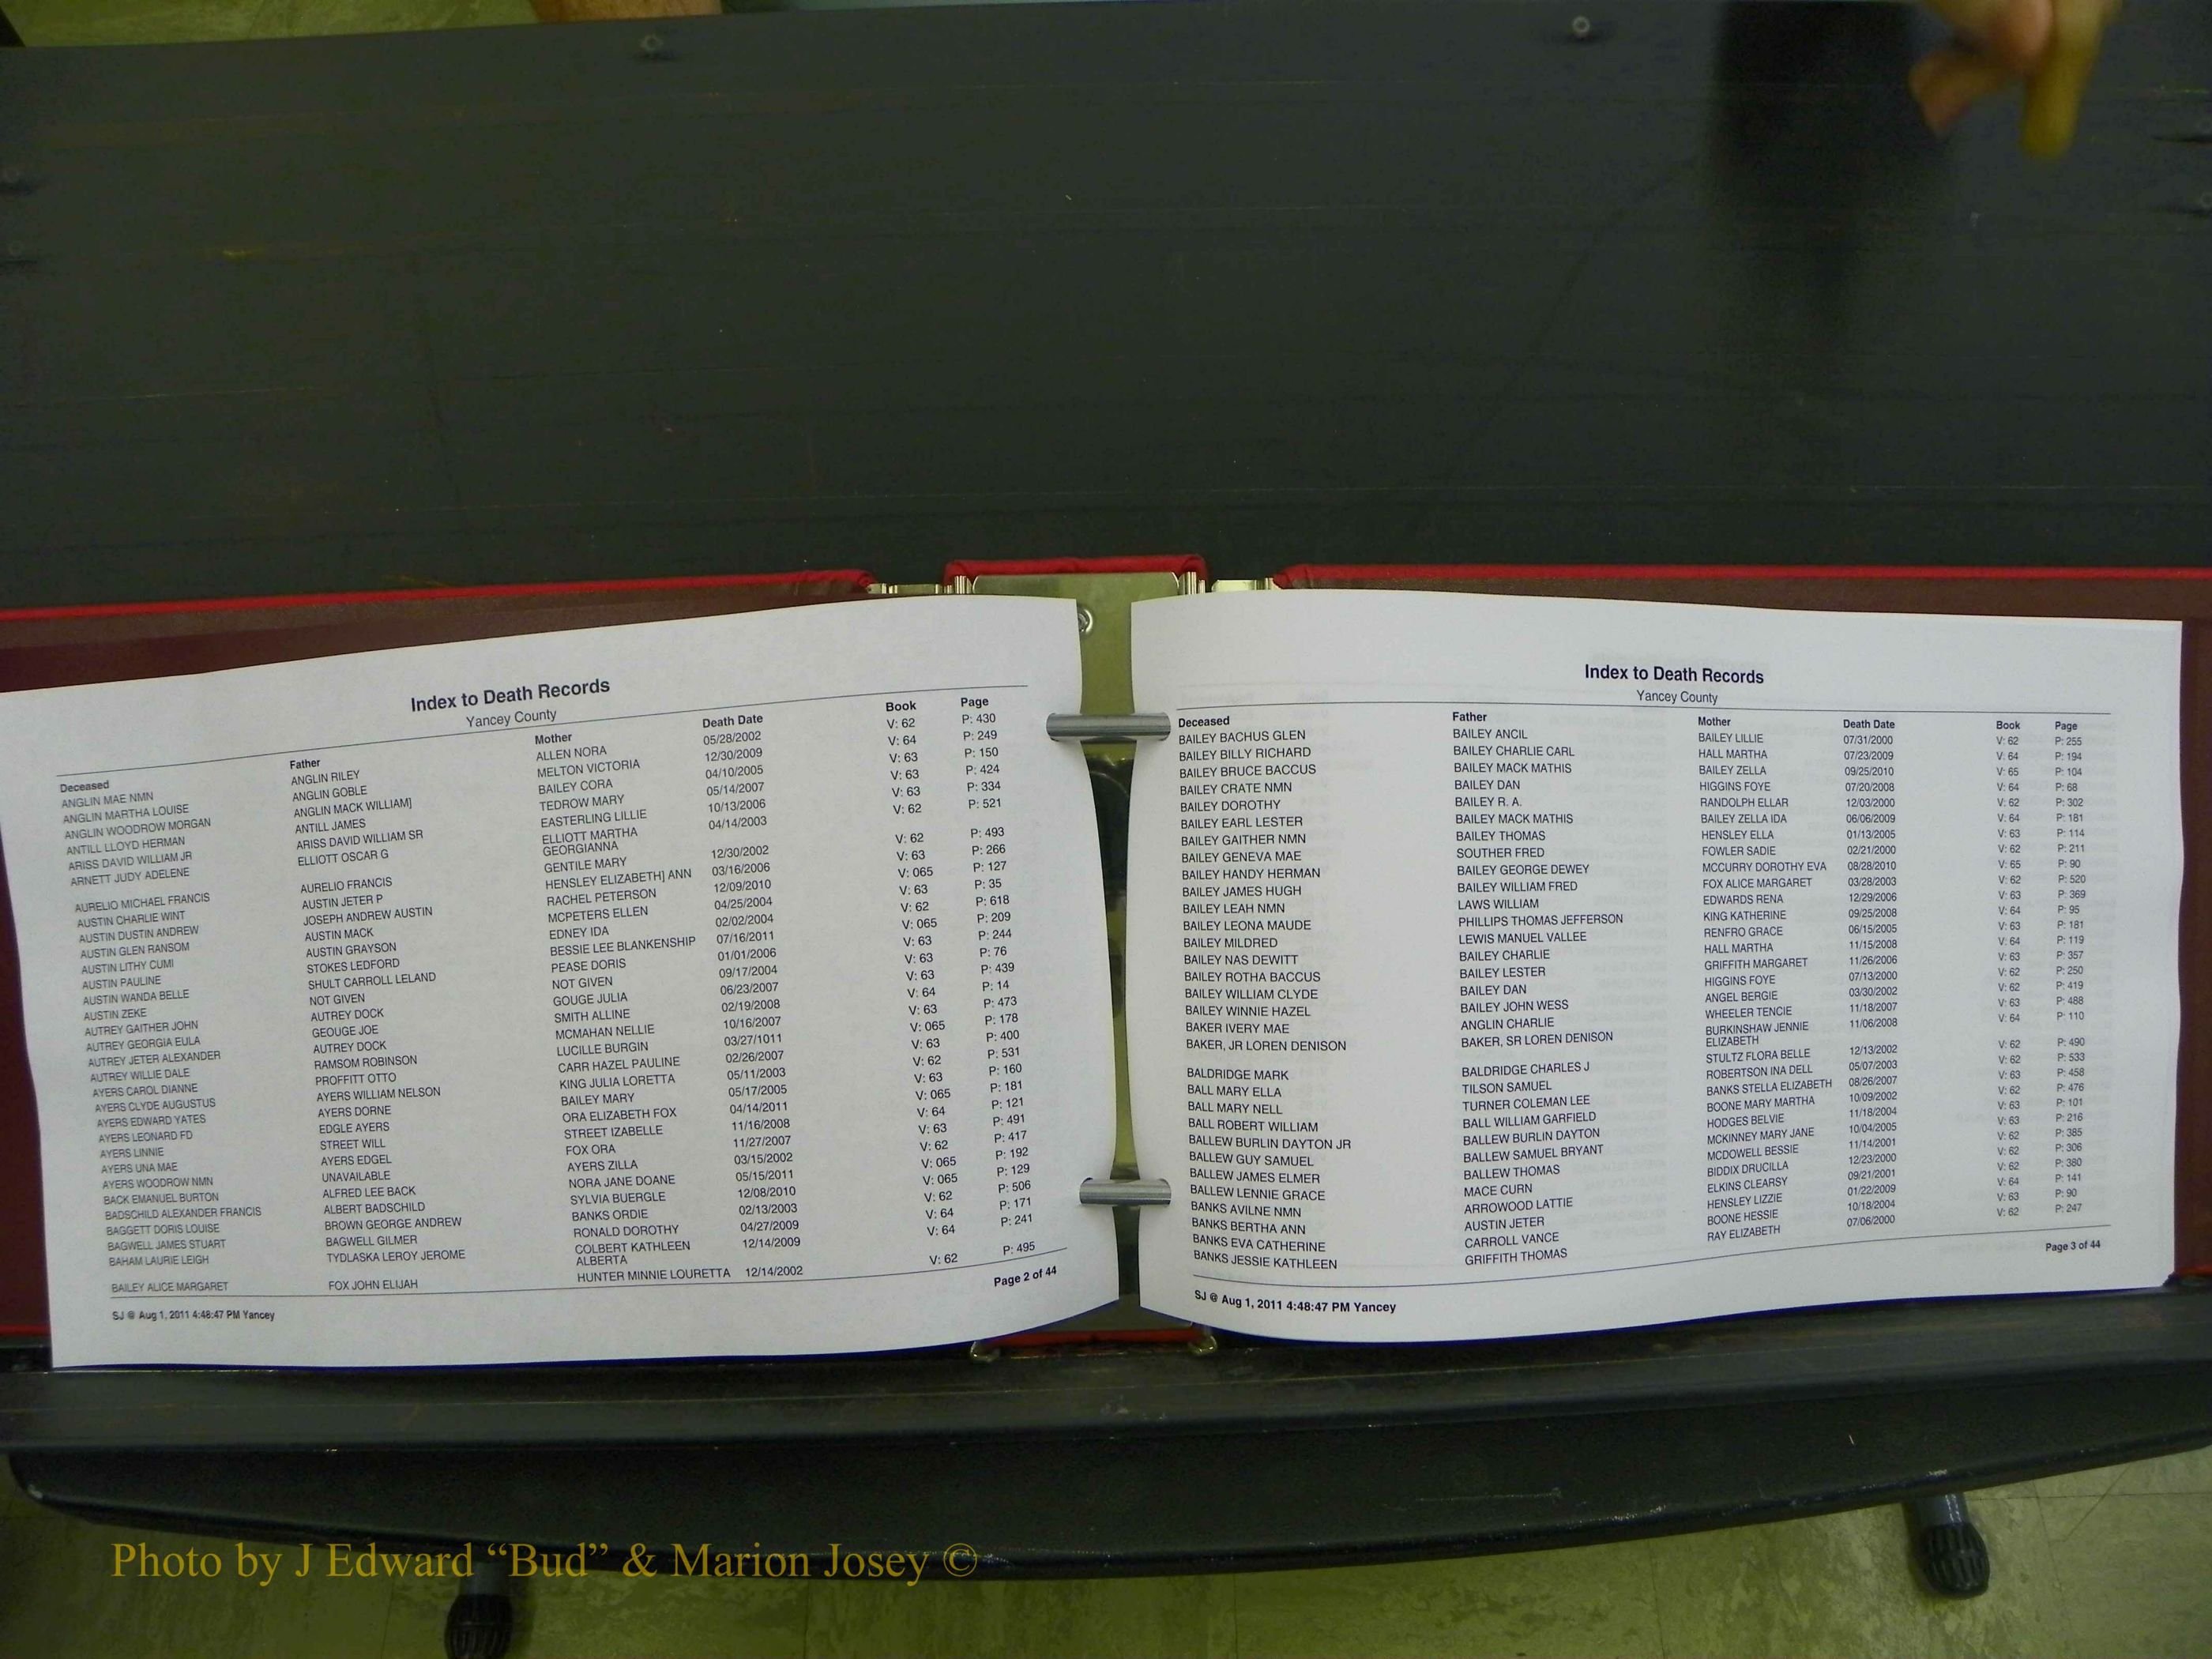 Index to Death Records
Yancey County
Deceased Father Mother Death Date Book Page
ANGLIN MAE NMN ANGLIN RILEY ALLEN NORA 05/28/2002 V: 62 P: 430
ANGLIN MARTHA LOUISE ANGLIN GOBLE MELTON VICTORIA 12/30/2009 V: 64 P: 249
ANGLIN WOODROW MORGAN ANGLIN MACK WILLIAM] BAILEY CORA 04/10/2005 V: 63 P: 150
ANTILL LLOYD HERMAN ANTILL JAMES TEDROW MARY 05/14/2007 V: 63 P: 424
ARISS DAVID WILLIAM JR ARISS DAVID WILLIAM SR EASTERLING LILLIE 10/13/2006 V: 63 P: 334
ARNETT JUDY ADELENE ELLIOTT OSCAR G ELLIOTT MARTHA 04/14/2003 V: 62 P: 521
GEORGIANNA
AURELIO MICHAEL FRANCIS AURELIO FRANCIS GENTILE MARY 12/30/2002 V: 62 P: 493
AUSTIN CHARLIE WINT AUSTIN JETER P HENSLEY ELIZABETH] ANN 03/16/2006 V: 63 P: 266
AUSTIN DUSTIN ANDREW JOSEPH ANDREW AUSTIN RACHEL PETERSON 12/09/2010 V: 065 P: 127
AUSTIN GLEN RANSOM AUSTIN MACK MCPETERS ELLEN 04/25/2004 V: 63 P: 35
AUSTIN LITHY CUMI AUSTIN GRAYSON EDNEY IDA 02/02/2004 V: 62 P: 618
AUSTIN PAULINE STOKES LEDFORD BESSIE LEE BLANKENSHIP 07/16/2011 V: 065 P: 209
AUSTIN WANDA BELLE SHULT CARROLL LELAND PEASE DORIS 01/01/2006 V: 63 P: 244
AUSTIN ZEKE NOT GIVEN NOT GIVEN 09/17/2004 V: 63 P: 76
AUTREY GAITHER JOHN AUTREY DOCK GOUGE JULIA 06/23/2007 V: 63 P: 439
AUTREY GEORGIA EULA GEOUGE JOE SMITH ALLINE 02/19/2008 V: 64 P: 14
AUTREY JETER ALEXANDER AUTREY DOCK MCMAHAN NELLIE 10/16/2007 V: 63 P: 473
AUTREY WILLIE DALE RAMSOM ROBINSON LUCILLE BURGIN 03/27/1011 V: 065 P: 178
AYERS CAROL DIANNE PROFFITT OTTO CARR HAZEL PAULINE 02/26/2007 V: 63 P: 400
AYERS CLYDE AUGUSTUS AYERS WILLIAM NELSON KING JULIA LORETTA 05/11/2003 V: 62 P: 531
AYERS EDWARD YATES AYERS DORNE BAILEY MARY 05/17/2005 V: 63 P: 160
AYERS LEONARD FD EDGLE AYERS ORA ELIZABETH FOX 04/14/2011 V: 065 P: 181
AYERS LINNIE STREET WILL STREET IZABELLE 11/16/2008 V: 64 P: 121
AYERS UNA MAE AYERS EDGEL FOX ORA 11/27/2007 V: 63 P: 491
AYERS WOODROW NMN UNAVAILABLE AYERS ZILLA 03/15/2002 V: 62 P: 417
BACK EMANUEL BURTON ALFRED LEE BACK NORA JANE DOANE 05/15/2011 V: 065 P: 192
BADSCHILD ALEXANDER FRANCIS ALBERT BADSCHILD SYLVIA BUERGLE 12/08/2010 V: 065 P: 129
BAGGETT DORIS LOUISE BROWN GEORGE ANDREW BANKS ORDIE 02/13/2003 V: 62 P: 506
BAGWELL JAMES STUART BAGWELL GILMER RONALD DOROTHY 04/27/2009 V: 64 P: 171
BAHAM LAURIE LEIGH TYDLASKA LEROY JEROME COLBERT KATHLEEN 12/14/2009 V: 64 P: 241
ALBERTA
BAILEY ALICE MARGARET FOX JOHN ELIJAH HUNTER MINNIE LOURETTA 12/14/2002 V: 62 P: 495
Page 2 of 44
SJ @ Aug 1, 2011 4:48:47 PM Yancey
Index to Death Records
Yancey County
Deceased Father Mother Death Date Book Page
BAILEY BACHUS GLEN BAILEY ANCIL BAILEY LILLIE 07/31/2000 V: 62 P: 255
BAILEY BILLY RICHARD BAILEY CHARLIE CARL HALL MARTHA 07/23/2009 V: 64 P: 194
BAILEY BRUCE BACCUS BAILEY MACK MATHIS BAILEY ZELLA 09/25/2010 V: 65 P: 104
BAILEY CRATE NMN BAILEY DAN HIGGINS FOYE 07/20/2008 V: 64 P: 68
BAILEY DOROTHY BAILEY R. A. RANDOLPH ELLAR 12/03/2000 V: 62 P: 302
BAILEY EARL LESTER BAILEY MACK MATHIS BAILEY ZELLA IDA 06/06/2009 V: 64 P: 181
BAILEY GAITHER NMN BAILEY THOMAS HENSLEY ELLA 01/13/2005 V: 63 P: 114
BAILEY GENEVA MAE SOUTHER FRED FOWLER SADIE 02/21/2000 V: 62 P: 211
BAILEY HANDY HERMAN BAILEY GEORGE DEWEY MCCURRY DOROTHY EVA 08/28/2010 V: 65 P: 90
BAILEY JAMES HUGH BAILEY WILLIAM FRED FOX ALICE MARGARET 03/28/2003 V: 62 P: 520
BAILEY LEAH NMN LAWS WILLIAM EDWARDS RENA 12/29/2006 V: 63 P: 369
BAILEY LEONA MAUDE PHILLIPS THOMAS JEFFERSON KING KATHERINE 09/25/2008 V: 64 P: 95
BAILEY MILDRED LEWIS MANUEL VALLEE RENFRO GRACE 06/15/2005 V: 63 P: 181
BAILEY NAS DEWITT BAILEY CHARLIE HALL MARTHA 11/15/2008 V: 64 P: 119
BAILEY ROTHA BACCUS BAILEY LESTER GRIFFITH MARGARET 11/26/2006 V: 63 P: 357
BAILEY WILLIAM CLYDE BAILEY DAN HIGGINS FOYE 07/13/2000 V: 62 P: 250
BAILEY WINNIE HAZEL BAILEY JOHN WESS ANGEL BERGIE 03/30/2002 V: 62 P: 419
BAKER IVERY MAE ANGLIN CHARLIE WHEELER TENCIE 11/18/2007 V: 63 P: 488
BAKER, JR LOREN DENISON BAKER, SR LOREN DENISON BURKINSHAW JENNIE 11/06/2008 V: 64 P: 110
ELIZABETH
BALDRIDGE MARK BALDRIDGE CHARLES J STULTZ FLORA BELLE 12/13/2002 V: 62 P: 490
BALL MARY ELLA TILSON SAMUEL ROBERTSON INA DELL 05/07/2003 V: 62 P: 533
BALL MARY NELL TURNER COLEMAN LEE BANKS STELLA ELIZABETH 08/26/2007 V: 63 P: 458
BALL ROBERT WILLIAM BALL WILLIAM GARFIELD BOONE MARY MARTHA 10/09/2002 V: 62 P: 476
BALLEW BURLIN DAYTON JR BALLEW BURLIN DAYTON HODGES BELVIE 11/18/2004 V: 63 P: 101
BALLEW GUY SAMUEL BALLEW SAMUEL BRYANT MCKINNEY MARY JANE 10/04/2005 V: 63 P: 216
BALLEW JAMES ELMER BALLEW THOMAS MCDOWELL BESSIE 11/14/2001 V: 62 P: 385
BALLEW LENNIE GRACE MACE CURN BIDDIX DRUCILLA 12/23/2000 V: 62 P: 306
BANKS AVILNE NMN ARROWOOD LATTIE ELKINS CLEARSY 09/21/2001 V: 62 P: 380
BANKS BERTHA ANN AUSTIN JETER HENSLEY LIZZIE 01/22/2009 V: 64 P: 141
BANKS EVA CATHERINE CARROLL VANCE BOONE HESSIE 10/18/2004 V: 63 P: 90
BANKS JESSIE KATHLEEN GRIFFITH THOMAS RAY ELIZABETH 07/06/2000 V: 62 P: 247
Page 3 of 44
SJ @ Aug 1, 2011 4:48:47 PM Yancey
Photo by J Edward “Bud” & Marion Josey ©